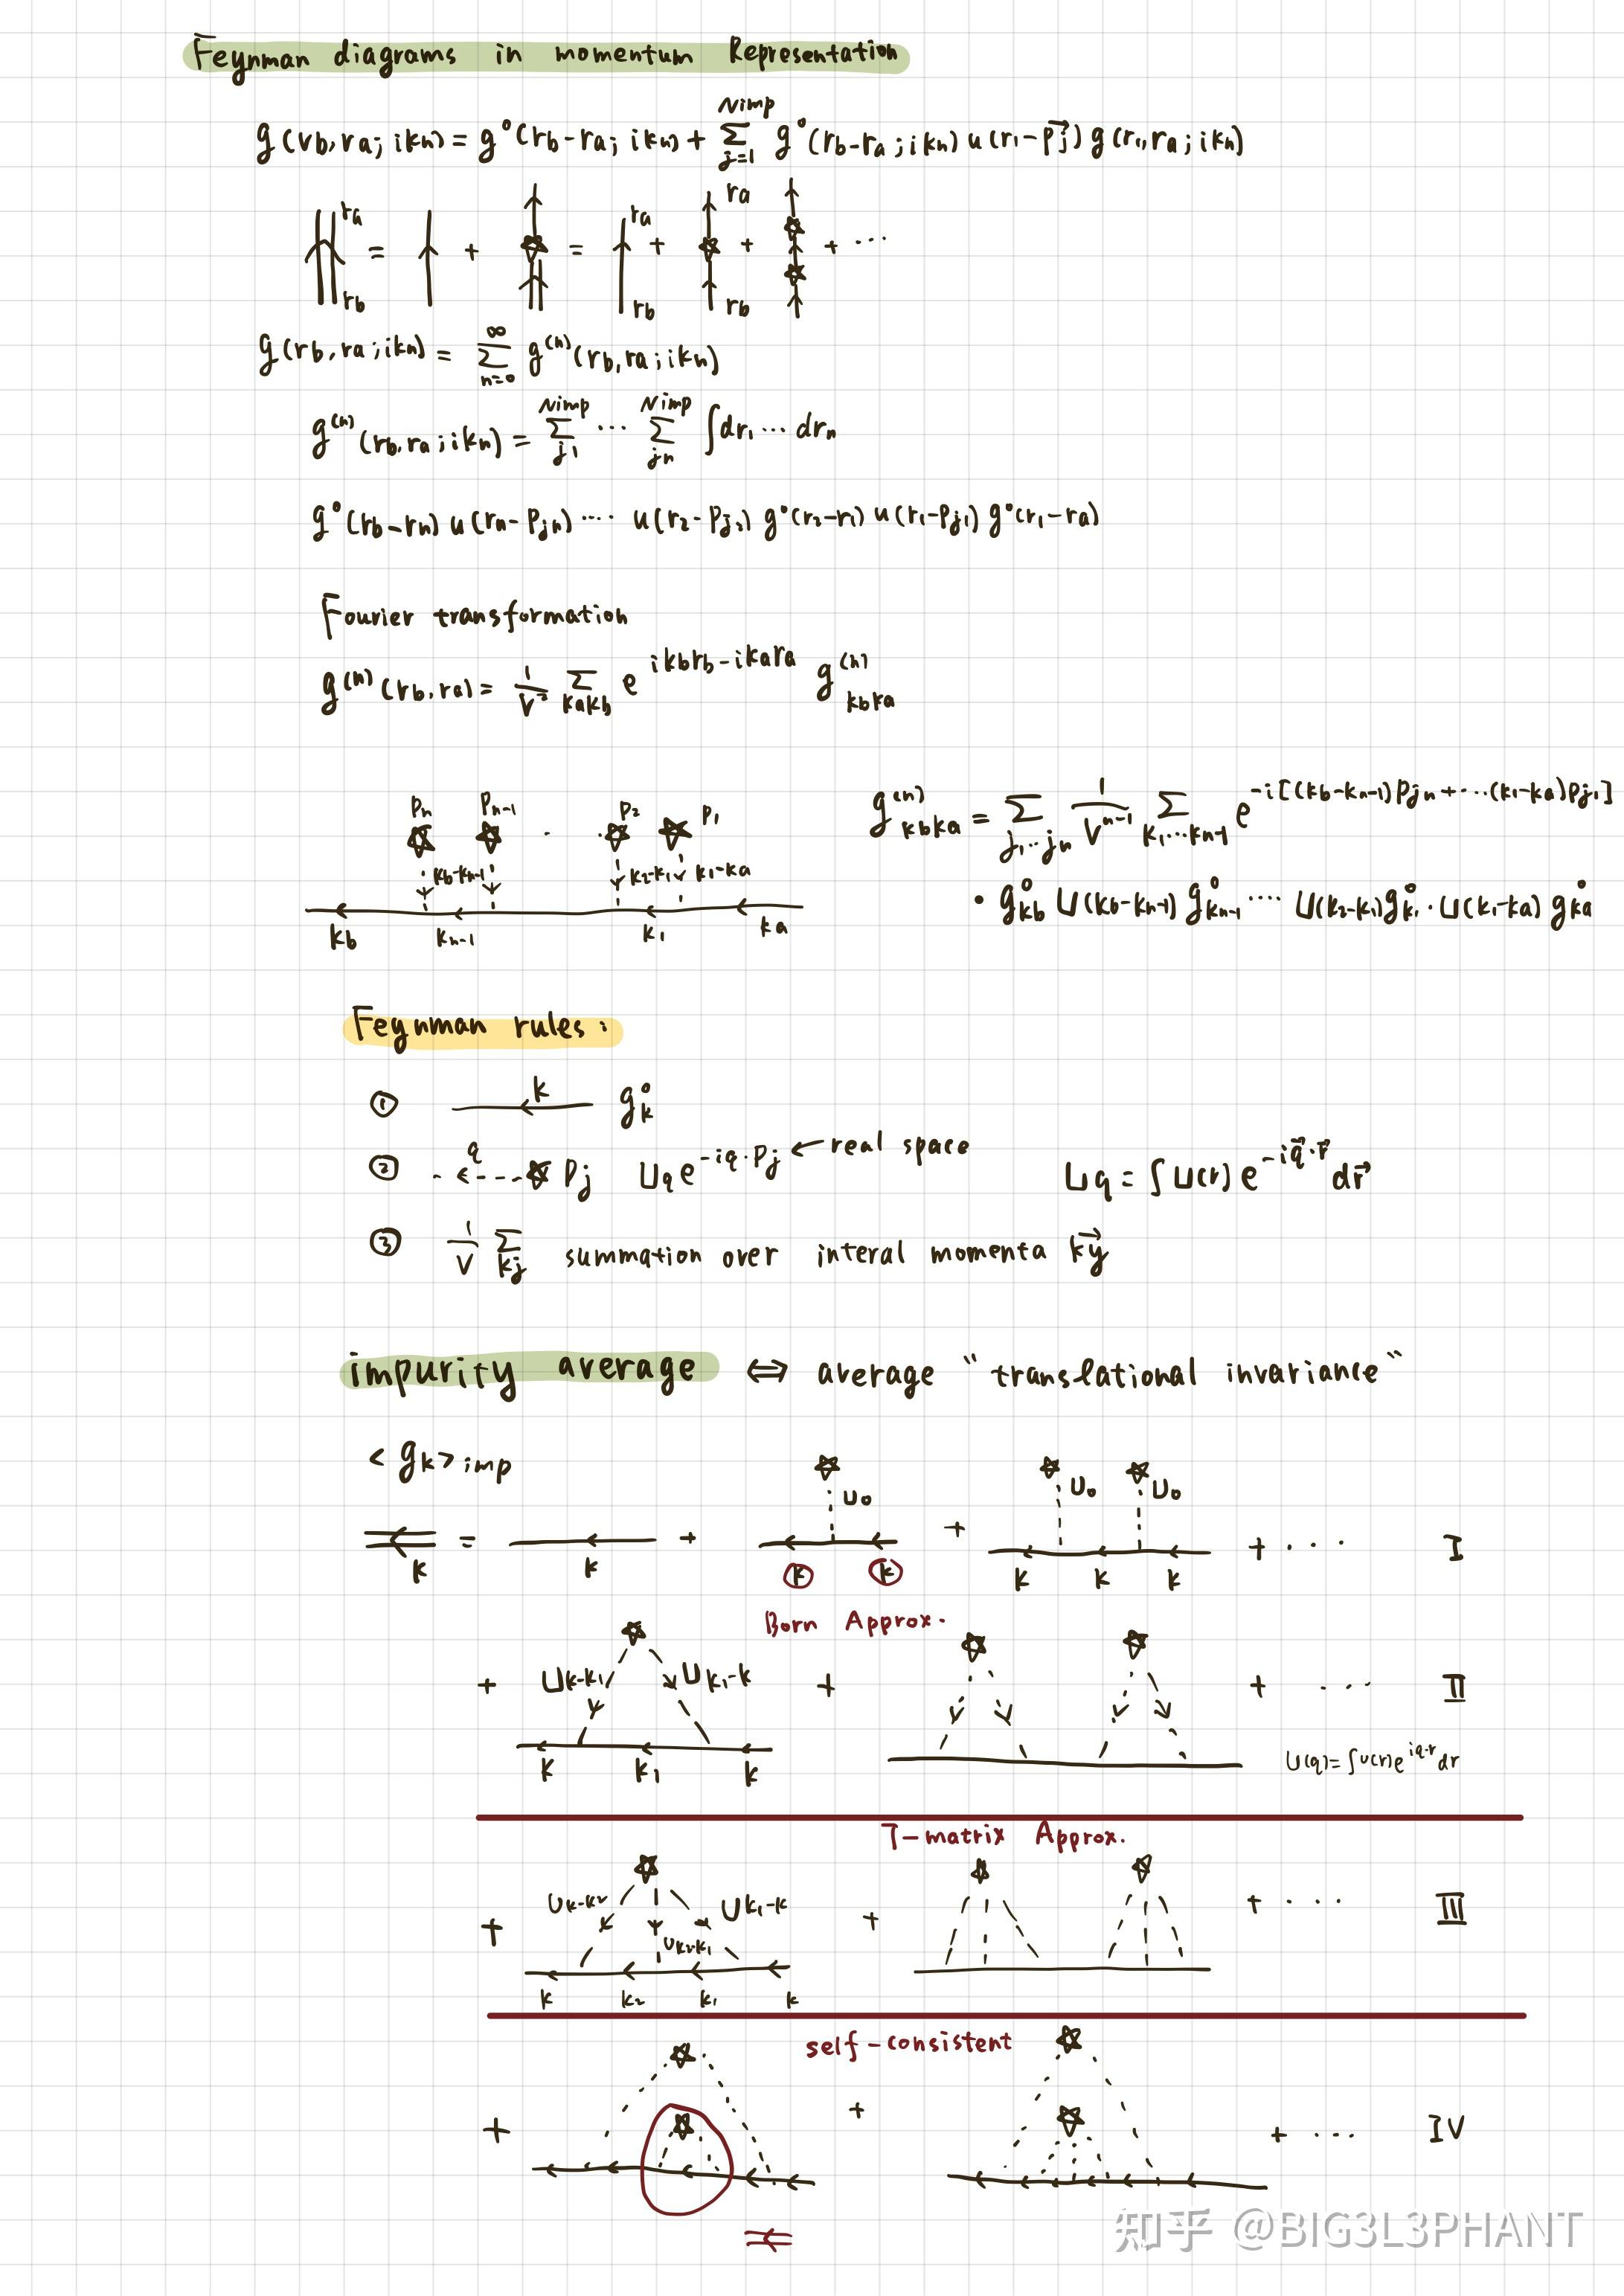 Feynman diagrams in momentum Representation
g(rb,ra;ikn) = g⁰(rb-ra;ikn) + Σ_{j=1}^{Nimp} g⁰(rb-ra;ikn) u(r₁-p⃗j) g(r₁,ra;ikn)
ra ra ra
= + = + + + ···
rb rb rb
g(rb,ra;ikn) = Σ_{n=0}^{∞} g⁽ⁿ⁾(rb,ra;ikn)
g⁽ⁿ⁾(rb,ra;ikn) = Σ_{j1}^{Nimp} ··· Σ_{jn}^{Nimp} ∫dr₁···drn
g⁰(rb-rn) u(rn-Pjn) ···· u(r₂-Pj₂) g⁰(r₂-r₁) u(r₁-Pj₁) g⁰(r₁-ra)
Fourier transformation
g⁽ⁿ⁾(rb,ra) = 1/V² Σ_{kakb} e^{ikbrb-ikara} g⁽ⁿ⁾_{kbka}
Pn Pn-1 · · P2 P1
kb-kn-1 k2-k1 k1-ka
kb kn-1 k1 ka
g⁽ⁿ⁾_{kbka} = Σ_{j1···jn} 1/V^{n-1} Σ_{k1···kn-1} e^{-i[(kb-kn-1)Pjn+···(k1-ka)Pj1]}
· g⁰_{kb} U(kb-kn-1) g⁰_{kn-1} ···· U(k2-k1) g⁰_{k1} · U(k1-ka) g⁰_{ka}
Feynman rules:
① k g⁰_k
② q Pj Uq e^{-iq·Pj} ← real space Uq = ∫U(r) e^{-iq⃗·r⃗} dr⃗
③ 1/V Σ_{kj} summation over interal momenta k⃗y
impurity average ⇔ average "translational invariance"
<gk>imp
U₀ U₀ U₀
k = k + k k + k k k + ··· I
Born Approx.
+ Uk-k1 Uk1-k + + ··· II
k k1 k
U(q)=∫u(r)e^{iq·r}dr
T-matrix Approx.
+ Uk-k2 Uk2-k1 Uk1-k + + ···· III
k k2 k1 k
self-consistent
+ + + ··· IV
知乎 @BIG3L3PHANT